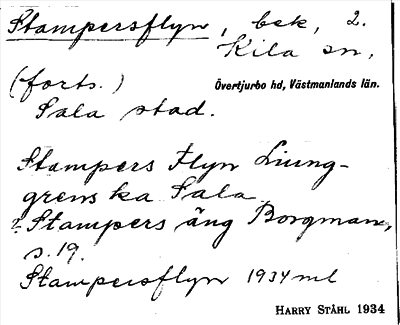 Stampersflyn, bek, 2.
Kila sn,
(forts.) Övertjurbo hd, Västmanlands län.
Sala stad.
Stampers Flyn Liung-
grens ka Sala
? Stampers äng Borgman,
s. 19.
Stampersflyn 1934 ml
HARRY STÅHL 1934